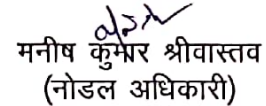 मनीष कुमार श्रीवास्तव
(नोडल अधिकारी)